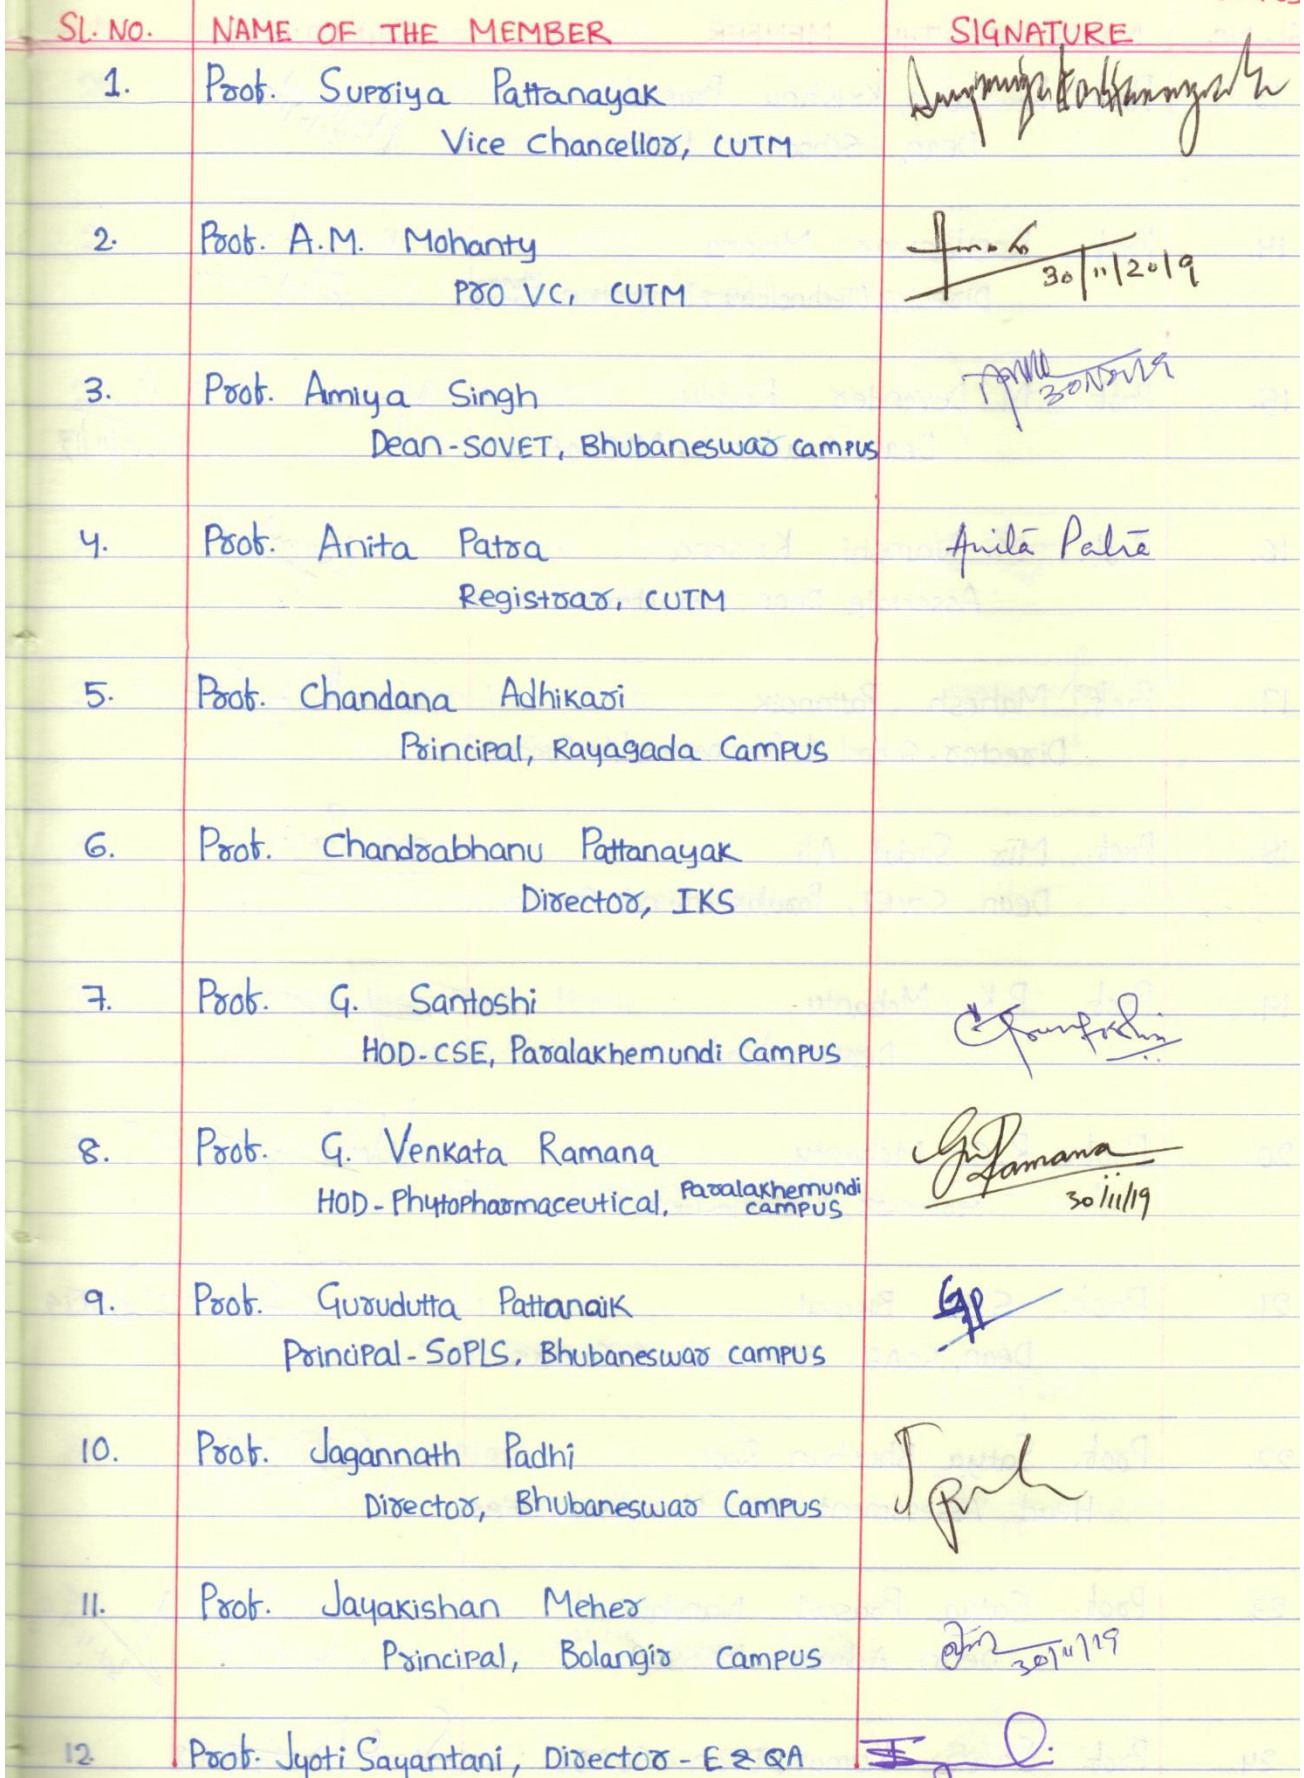 SL. NO. NAME OF THE MEMBER SIGNATURE
1. Prof. Supriya Pattanayak
Vice Chancellor, CUTM
2. Prof. A.M. Mohanty
Pro VC, CUTM 30/11/2019
3. Prof. Amiya Singh
Dean-SOVET, Bhubaneswar Campus
4. Prof. Anita Patra Anita Patra
Registrar, CUTM
5. Prof. Chandana Adhikari
Principal, Rayagada Campus
6. Prof. Chandrabhanu Pattanayak
Director, IKS
7. Prof. G. Santoshi
HOD-CSE, Paralakhemundi Campus
8. Prof. G. Venkata Ramana GV Ramana
HOD-Phytopharmaceutical, Paralakhemundi campus 30/11/19
9. Prof. Gurudutta Pattanaik GP
Principal-SoPLS, Bhubaneswar campus
10. Prof. Jagannath Padhi
Director, Bhubaneswar Campus
11. Prof. Jayakishan Meher
Principal, Bolangir Campus 30/11/19
12. Prof. Jyoti Sayantani, Director-E & QA